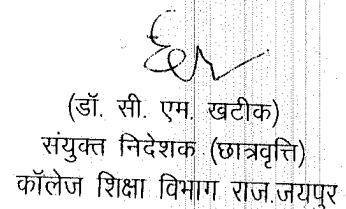 (डॉ. सी. एम. खटीक)
संयुक्त निदेशक (छात्रवृत्ति)
कॉलेज शिक्षा विभाग राज.जयपुर